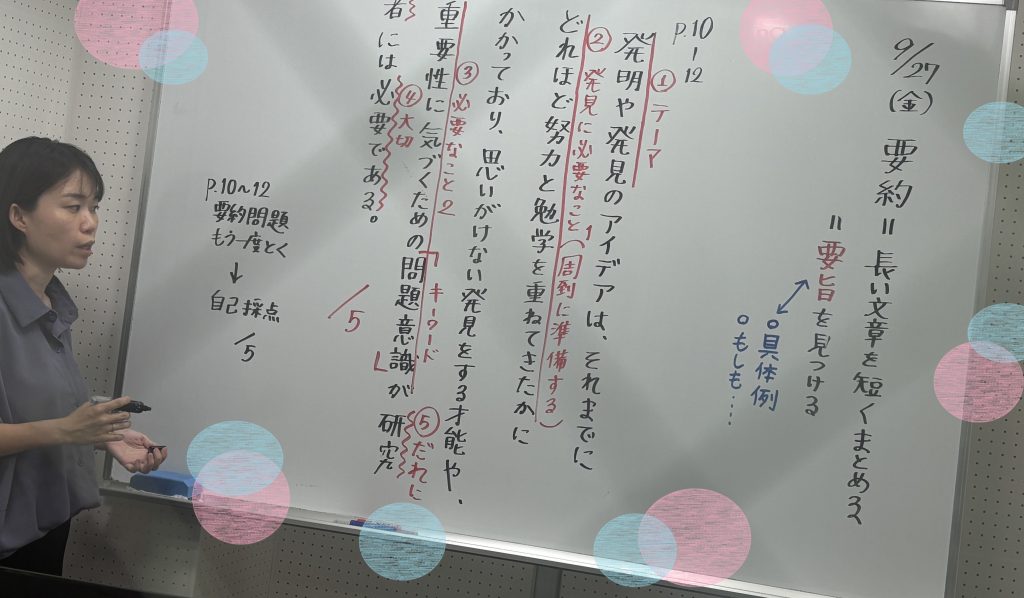 9/27(金) 要約＝長い文章を短くまとめる
＝要旨を見つける
○具体例
○もしも…
P.10-12
①テーマ
発明や発見のアイデアは、それまでに
②発見に必要なこと1(周到に準備する)
どれほど努力と勉学を重ねてきたかに
かかっており、思いがけない発見をする才能や、
③必要なこと2
重要性に気づくための問題意識が研究
「キーワード」
⑤だれに
④大切
者には必要である。
/5
P.10～12
要約問題
もう一度とく
↓
自己採点
/5